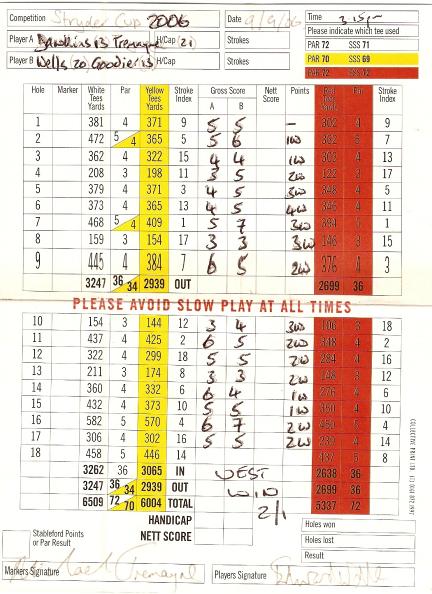 Competition Stryder Cup 2006 Date 9/9/06 Time 3.15pm
Please indicate which tee used
Player A Hawkins 13 Tremayne H/Cap (21 Strokes PAR 72 SSS 71
PAR 70 SSS 69
Player B Wells 20 Goodier 13 H/Cap Strokes PAR 72 SSS 72
Hole Marker White Tees Yards Par Yellow Tees Yards Stroke Index Gross Score A B Nett Score Points Red Tees Yards Par Stroke Index
1 381 4 371 9 5 5 – 302 4 9
2 472 5 4 365 5 5 6 1W 362 5 7
3 362 4 322 15 4 4 1W 303 4 13
4 208 3 198 11 3 5 2W 122 3 17
5 379 4 371 3 4 5 3W 348 4 5
6 373 4 365 13 4 5 4W 346 4 11
7 468 5 4 409 1 5 7 3W 394 5 1
8 159 3 154 17 3 3 3W 146 3 15
9 445 4 384 7 6 5 2W 376 4 3
3247 36 34 2939 OUT 2699 36
PLEASE AVOID SLOW PLAY AT ALL TIMES
10 154 3 144 12 3 4 3W 106 3 18
11 437 4 425 2 6 5 2W 348 4 2
12 322 4 299 18 5 5 2W 284 4 16
13 211 3 174 8 3 3 2W 148 3 12
14 360 4 332 6 6 4 1W 276 4 6
15 432 4 373 10 5 5 1W 360 4 10
16 582 5 570 4 6 7 2W 450 5 4
17 306 4 302 16 5 5 2W 230 4 14
18 458 5 446 14 437 5 8
3262 36 3065 IN WEST 2638 36
3247 36 34 2939 OUT WIN 2699 36
6509 72 70 6004 TOTAL 2/1 5337 72
HANDICAP
NETT SCORE
Holes won
Holes lost
Result
Stableford Points or Par Result
Markers Signature Tremayne Players Signature